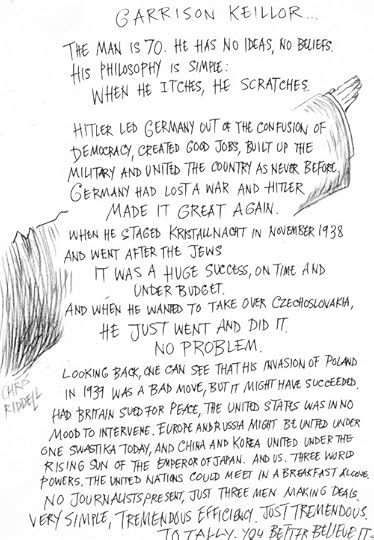 GARRISON KEILLOR...
THE MAN IS 70. HE HAS NO IDEAS, NO BELIEFS.
HIS PHILOSOPHY IS SIMPLE:
WHEN HE ITCHES, HE SCRATCHES.
HITLER LED GERMANY OUT OF THE CONFUSION OF
DEMOCRACY, CREATED GOOD JOBS, BUILT UP THE
MILITARY AND UNITED THE COUNTRY AS NEVER BEFORE,
GERMANY HAD LOST A WAR AND HITLER
MADE IT GREAT AGAIN.
WHEN HE STAGED KRISTALLNACHT IN NOVEMBER 1938
AND WENT AFTER THE JEWS
IT WAS A HUGE SUCCESS, ON TIME AND
UNDER BUDGET.
AND WHEN HE WANTED TO TAKE OVER CZECHOSLOVAKIA,
HE JUST WENT AND DID IT.
NO PROBLEM.
LOOKING BACK, ONE CAN SEE THAT HIS INVASION OF POLAND
IN 1939 WAS A BAD MOVE, BUT IT MIGHT HAVE SUCCEEDED.
HAD BRITAIN SUED FOR PEACE, THE UNITED STATES WAS IN NO
MOOD TO INTERVENE. EUROPE AND RUSSIA MIGHT BE UNITED UNDER
ONE SWASTIKA TODAY, AND CHINA AND KOREA UNITED UNDER THE
RISING SUN OF THE EMPEROR OF JAPAN. AND US. THREE WORLD
POWERS. THE UNITED NATIONS COULD MEET IN A BREAKFAST ALCOVE.
NO JOURNALISTS PRESENT, JUST THREE MEN MAKING DEALS.
VERY SIMPLE, TREMENDOUS EFFICIENCY. JUST TREMENDOUS.
TOTALLY. YOU BETTER BELIEVE IT
CHRIS
RIDDELL